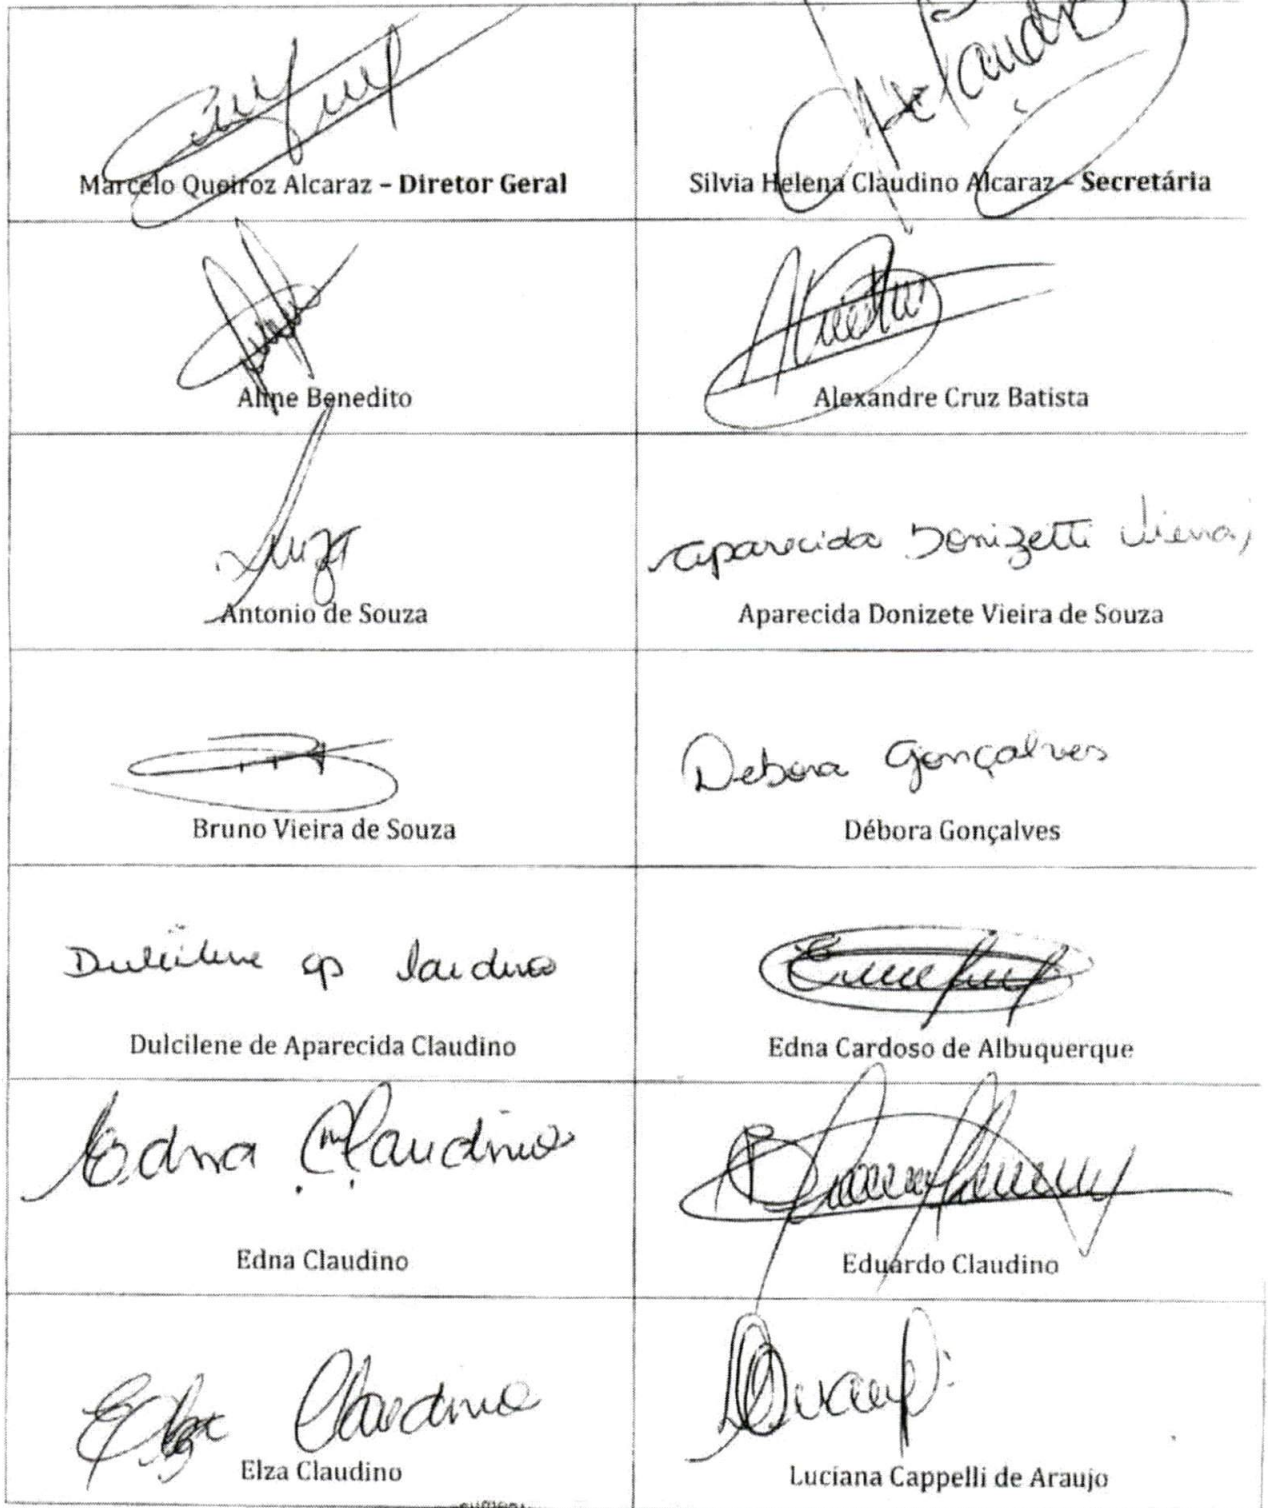 Marcelo Queiroz Alcaraz – Diretor Geral
Silvia Helena Claudino Alcaraz – Secretária
Aline Benedito
Alexandre Cruz Batista
Antonio de Souza
aparecida Donizetti Vieira
Aparecida Donizete Vieira de Souza
Bruno Vieira de Souza
Debora Gonçalves
Débora Gonçalves
Dulcilene ap
Dulcilene de Aparecida Claudino
Edna Cardoso de Albuquerque
Edna Claudino
Edna Claudino
Eduardo Claudino
Elza Claudino
Elza Claudino
Luciana Cappelli de Araujo